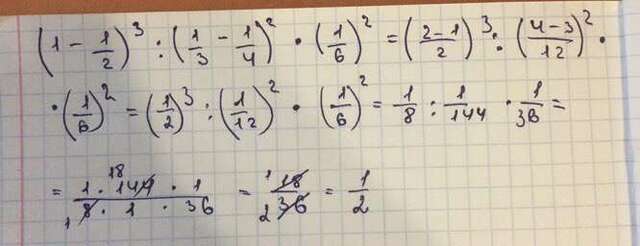 (1 - 1/2)³ : (1/3 - 1/4)² · (1/6)² = ((2-1)/2)³ : ((4-3)/12)² ·
· (1/6)² = (1/2)³ : (1/12)² · (1/6)² = 1/8 : 1/144 · 1/36 =
= (1 · 144 18 · 1)/(8 1 · 1 · 36) = (18 1)/(36 2) = 1/2